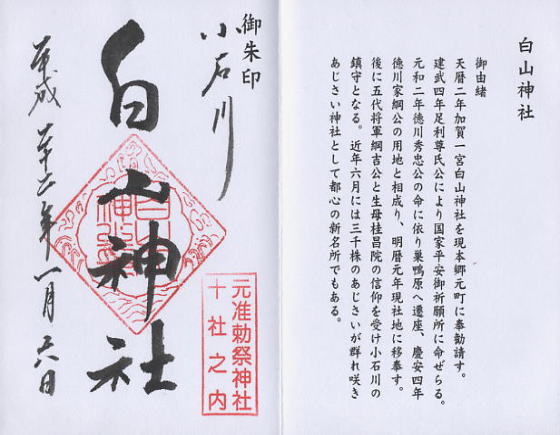 白山神社
御由緒
天暦二年加賀一宮白山神社を現本郷元町に奉勧請す。
建武四年足利尊氏公により国家平安御祈願所に命ぜらる。
元和二年徳川秀忠公の命に依り巣鴨原へ遷座、慶安四年
徳川家綱公の用地と相成り、明暦元年現社地に移奉す。
後に五代将軍綱吉公と生母桂昌院の信仰を受け小石川の
鎮守となる。近年六月には三千株のあじさいが群れ咲き
あじさい神社として都心の新名所でもある。
御朱印
小石川
白山神社
元准勅祭神社
十社之内
平成二十二年一月六日